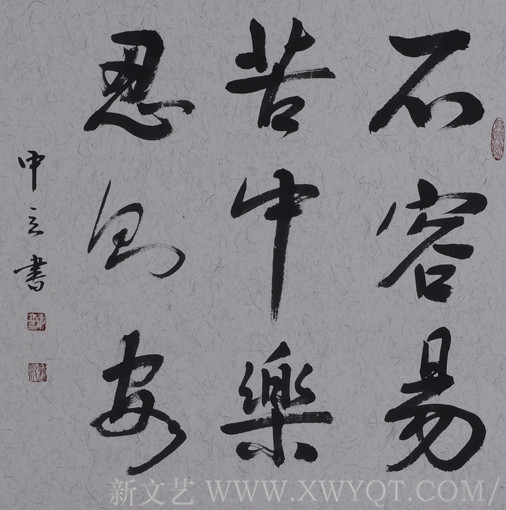 不容易
苦中樂
忍則安
申立書
新文艺 WWW.XWYQT.COM/